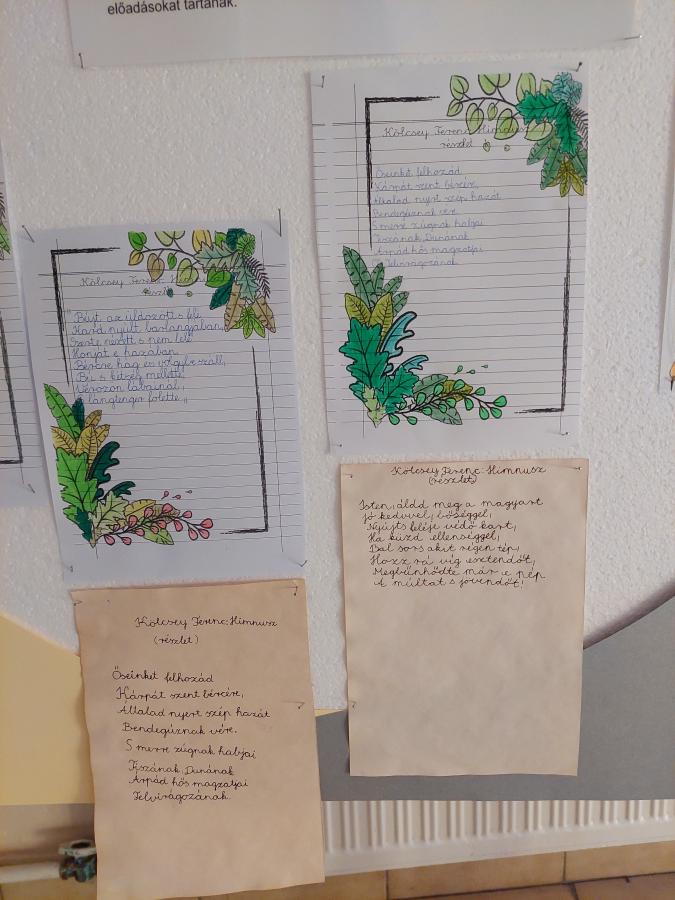 előadásokat tartanak.
Kölcsey Ferenc: Himnusz
részlet
"Bújt az üldözött s felé
Kard nyúlt barlangjában,
Szerte nézett s nem lelé
Honját e hazában.
Bércre hág és völgybe száll,
Bú s kétség mellette,
Vérözön lábainál,
S lángtenger fölötte."
Kölcsey Ferenc Himnusz
részlet
Őseinket felhozád
Kárpát szent bércére,
Általad nyert szép hazát
Bendegúznak vére
S merre zúgnak habjai
Tiszának, Dunának
Árpád hős magzatjai
Felvirágozának.
Kölcsey Ferenc: Himnusz
(részlet)
Őseinket felhozád
Kárpát szent bércére,
Általad nyert szép hazát
Bendegúznak vére.
S merre zúgnak habjai
Tiszának, Dunának
Árpád hős magzatjai
Felvirágozának.
Kölcsey Ferenc: Himnusz
(részlet)
Isten, áldd meg a magyart
Jó kedvvel, bőséggel,
Nyújts feléje védő kart,
Ha küzd ellenséggel,
Bal sors akit régen tép,
Hozz rá víg esztendőt,
Megbűnhődte már e nép
A múltat s jövendőt!